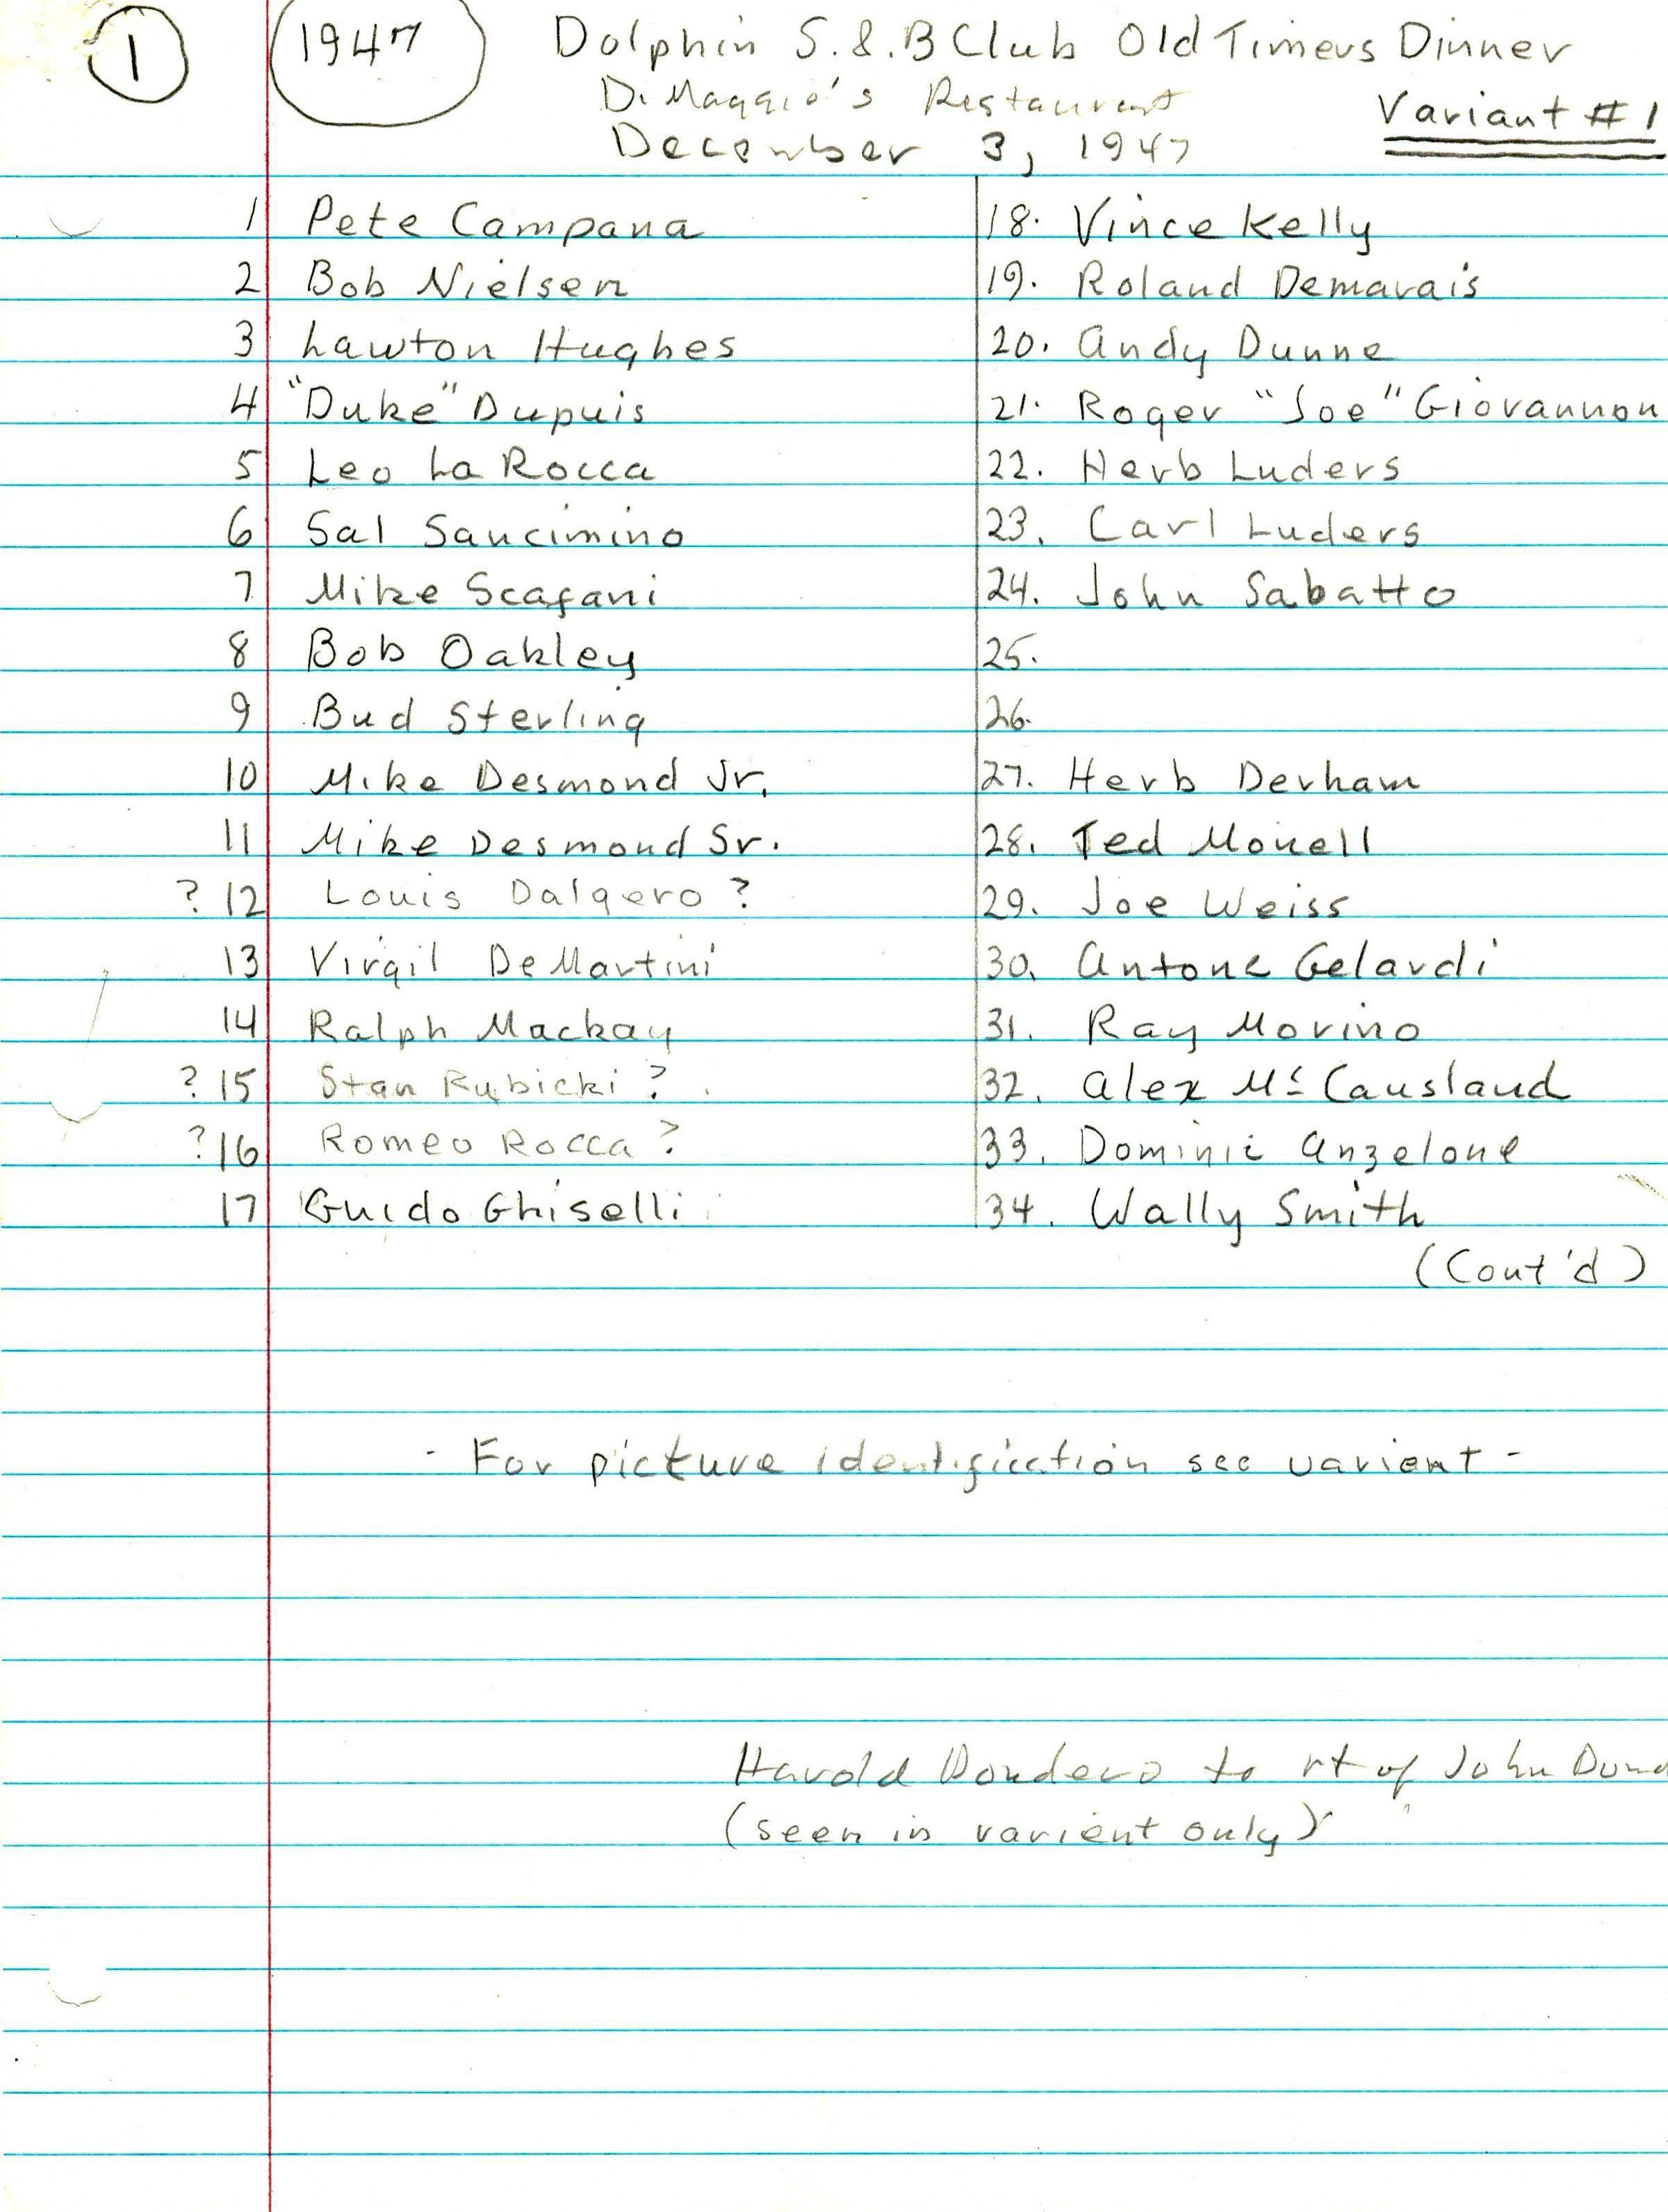 1
1947
Dolphin S. & B Club Old Timers Dinner
DiMaggio's Restaurant
December 3, 1947
Variant #1
1 Pete Campana
2 Bob Nielsen
3 Lawton Hughes
4 "Duke" Dupuis
5 Leo La Rocca
6 Sal Sancimino
7 Mike Scafani
8 Bob Oakley
9 Bud Sterling
10 Mike Desmond Jr.
11 Mike Desmond Sr.
? 12 Louis Dalgero ?
13 Virgil DeMartini
14 Ralph Mackay
? 15 Stan Rubicki ?
? 16 Romeo Rocca ?
17 Guido Ghiselli
18. Vince Kelly
19. Roland Demarais
20. Andy Dunne
21. Roger "Joe" Giovannon
22. Herb Luders
23. Carl Luders
24. John Sabatto
25.
26.
27. Herb Derham
28. Ted Monell
29. Joe Weiss
30. Antone Gelardi
31. Ray Morino
32. Alex Mc Causland
33. Dominic Anzelone
34. Wally Smith
(Cont'd)
- For picture identification see varient -
Harold Dondero to rt of John Dond
(seen in varient only)